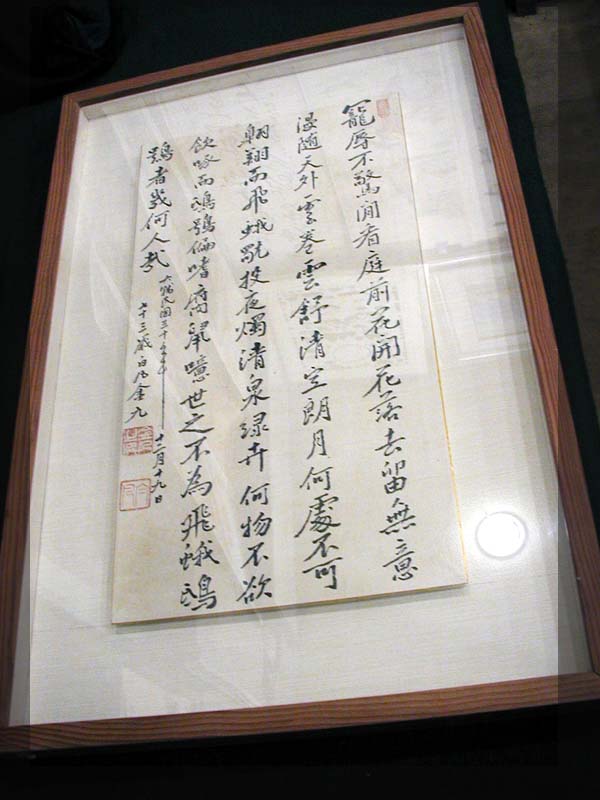 寵辱不驚閒看庭前花開花落去留無意
漫隨天外雲卷雲舒清空朗月何處不可
翱翔而飛蛾獨投夜燭清泉綠卉何物不欲
飲啄而鴟鴞偏嗜腐鼠噫世之不為飛蛾鴟
鴞者幾何人哉
大韓民國三十年十二月十九日
七十三歲白凡金九